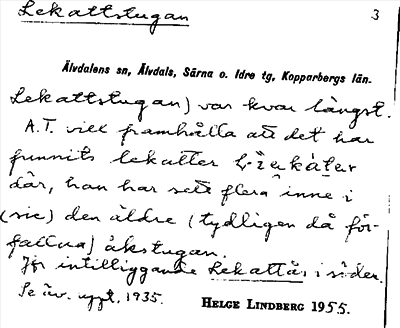 Lekattstugan
3
Älvdalens sn, Älvdals, Särna o. Idre tg, Kopparbergs län.
Lekattstugan) var kvar längst.
A.T. vill framhålla att det har
funnits lekatter
där, han har sett flera inne i
(sic) den äldre (tydligen då för-
fallna) åkstugan.
Jfr intilliggande Lekattås i söder.
Se äv. uppt. 1935.
HELGE LINDBERG 1955.